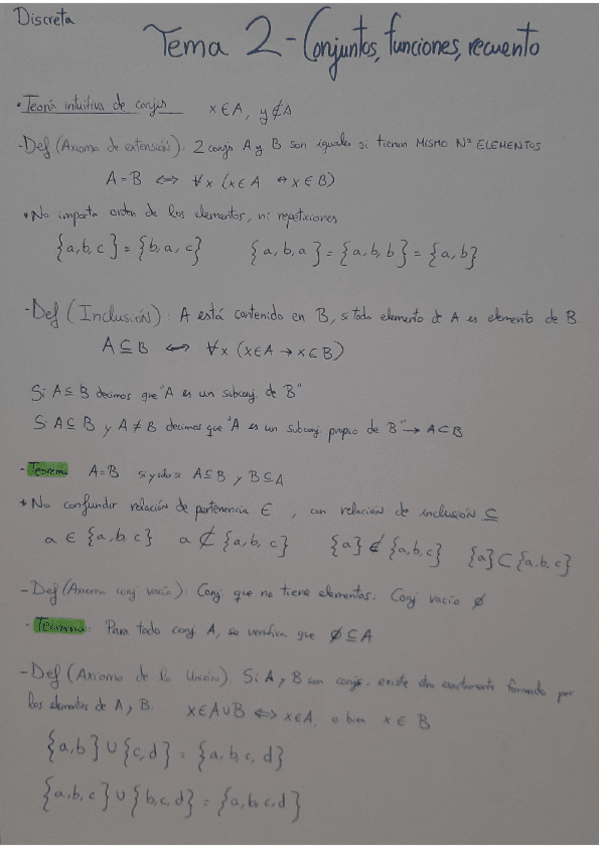 Discreta
Tema 2 - Conjuntos, funciones, recuento
• Teoría intuitiva de conjs x∈A, y∉A
- Def (Axioma de extensión). 2 conjs A y B son iguales si tienen MISMO Nº ELEMENTOS
A = B ⟺ ∀x (x∈A ↔ x∈B)
* No importa orden de los elementos, ni repeticiones
{a,b,c} = {b,a,c} {a,b,a} = {a,b,b} = {a,b}
- Def (Inclusión): A está contenido en B, si todo elemento de A es elemento de B.
A⊆B ⟺ ∀x (x∈A → x∈B)
Si A⊆B decimos que "A es un subconj. de B"
Si A⊆B y A≠B decimos que "A es un subconj propio de B" → A⊂B
- Teorema A=B si y solo si A⊆B y B⊆A
* No confundir relación de pertenencia ∈, con relación de inclusión ⊆
a ∈ {a,b,c} a ⊄ {a,b,c} {a} ∉ {a,b,c} {a} ⊂ {a,b,c}
- Def (Axioma conj vacío): Conj que no tiene elementos: Conj vacío ∅
· Teorema: Para todo conj A, se verifica que ∅⊆A
- Def (Axioma de la Unión). Si A y B son conjs. existe otro exactamente formado por
los elementos de A y B. x∈A∪B ⟺ x∈A, o bien x∈B
{a,b} ∪ {c,d} = {a,b,c,d}
{a,b,c} ∪ {b,c,d} = {a,b,c,d}